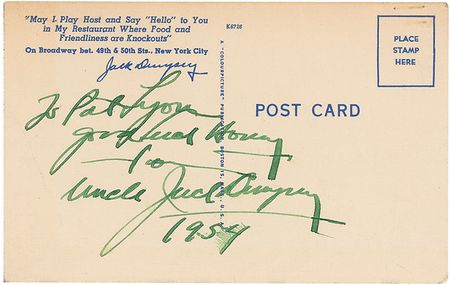 "May I Play Host and Say "Hello" to You
in My Restaurant Where Food and
Friendliness are Knockouts"
On Broadway bet. 49th & 50th Sts., New York City
Jack Dempsey
K6726
PLACE
STAMP
HERE
POST CARD
To Pat Lyons
good luck Honey
Uncle Jack Dempsey
1954